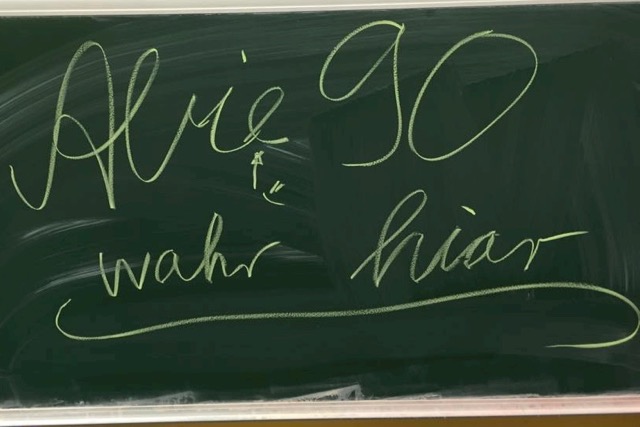 Alvie 90
wahr hiar